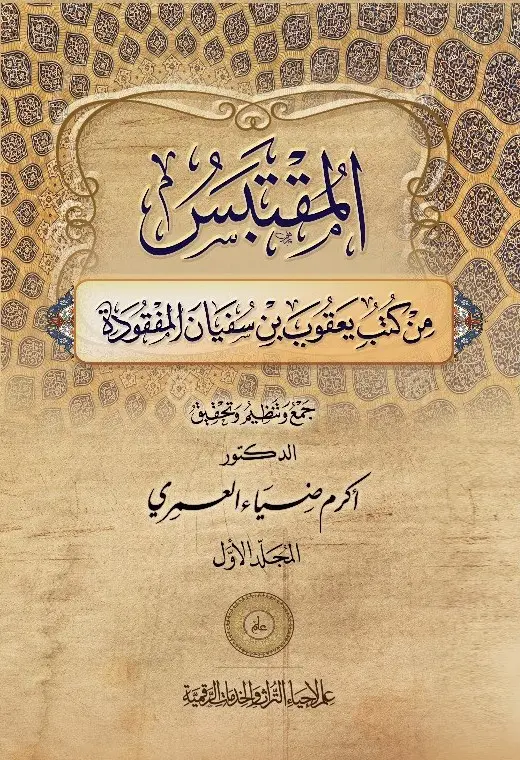 المُقْتَبَسُ
مِنْ كُتُبِ يَعْقُوبَ بِنْ سُفيَان المَفْقُودَة
جَمْعُ وَتَنظِيمُ وَتَحْقِيقُ
الدكتور
أكرم ضِيَاء العمري
المُجلّد الأوَّل
علم
علم لإحياء التراث والخدمات الرقمية